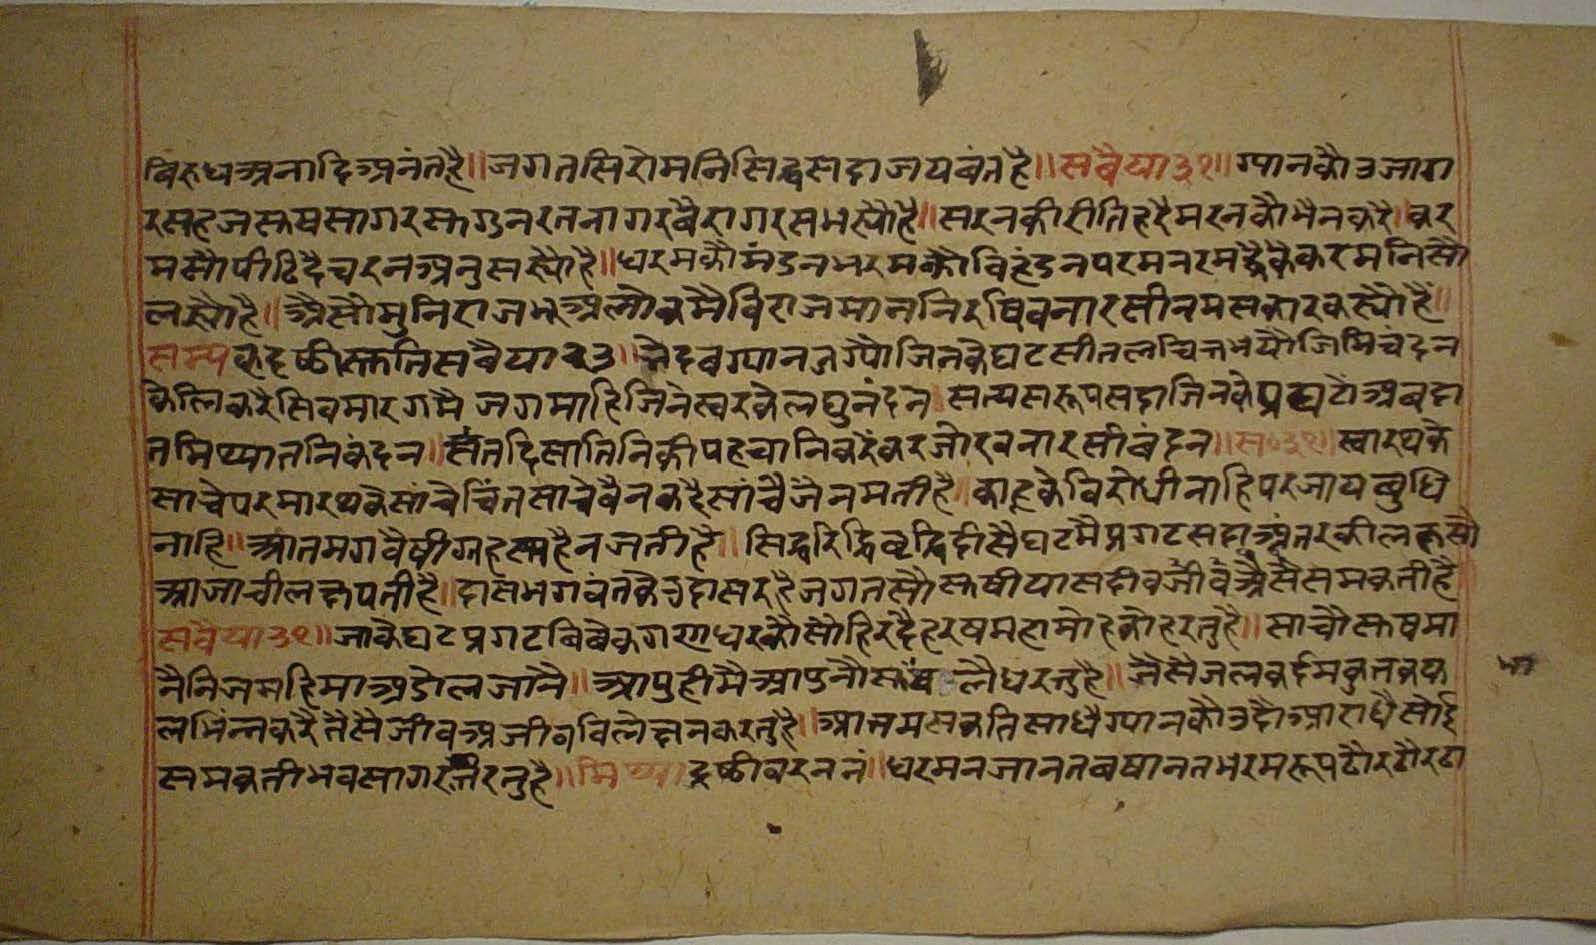 बिरुधअनादिअनंतहै॥जगतसिरोमनिसिद्धसदाजयवंतहै॥सवैया३१॥ग्यानकौउजारा
रसहजसुषसागरसुगुनरतनागरबैरागरसभर्‌यौहै॥सरनकीरीतिहरैमरनकौभैनकरै।कर
मसौपीठिदैचरनअनुसर्‌यौहै॥धरमकौमंडनभरमकौविहंडनपरमनरमह्वैकैकरमनिसौ
लर्‌यौहै॥अैसौमुनिराजभुअलोकमैविराजमाननिरषिबनारसीनमसकारकर्‌यौहै॥
सम्यकदृष्टीस्तुतिसवैया२३॥भेदबग्यानजग्यौजिनकेघटसीतलचित्तभयौजिमिचंदन
केलिकरैसिवमारगमै जगमाहिजिनेस्वरकेलघुनंदन।सत्यसरूपसदाजिनकेप्रघटौअवदा
तमिथ्यातनिकंदन॥संतदिसातिनिकीपहचानिकरैकरजोरबनारसीबंदन॥स॰३१॥स्वारथके
साचेपरमारथकेसांचेचिंतसाचेबैनकहैसांचैजैनमतीहै।काहूकेविरोधीनाहिपरजायबुधि
नाहि॥आतमगवैषीगृहस्तहैनजतीहै॥सिद्धिरिद्धिवृद्धिदीसैघटमैप्रगटसदाअंतरकीलछसौ
अजाचीलछपतीहै॥दासभगवंतकेउदासरहैजगतसौसुषीयासदीवजीवअैसैसमकतीहै
सवैया३१॥जाकेघटप्रगटबिबेकगणधरकौसौहिरदैहरषमहामोहकोहरतुहै॥साचौसुषमा
नैनिजमहिमाअडोलजानै॥आपुहीमैआपनौसुभावलैधरतुहै॥जैसैजलकर्दमकुतकफ
लभिंन्नकरैतैसैजीवअजीवविलेछनकरतुहै॥आतमसकतिसाधैग्यानकौउदौआराधैसोई
समकतीभवसागरतरतुहै॥मिथ्यादृष्टीवरननं॥धरमनजानतबषानतभरमरूपठौरठौरठा